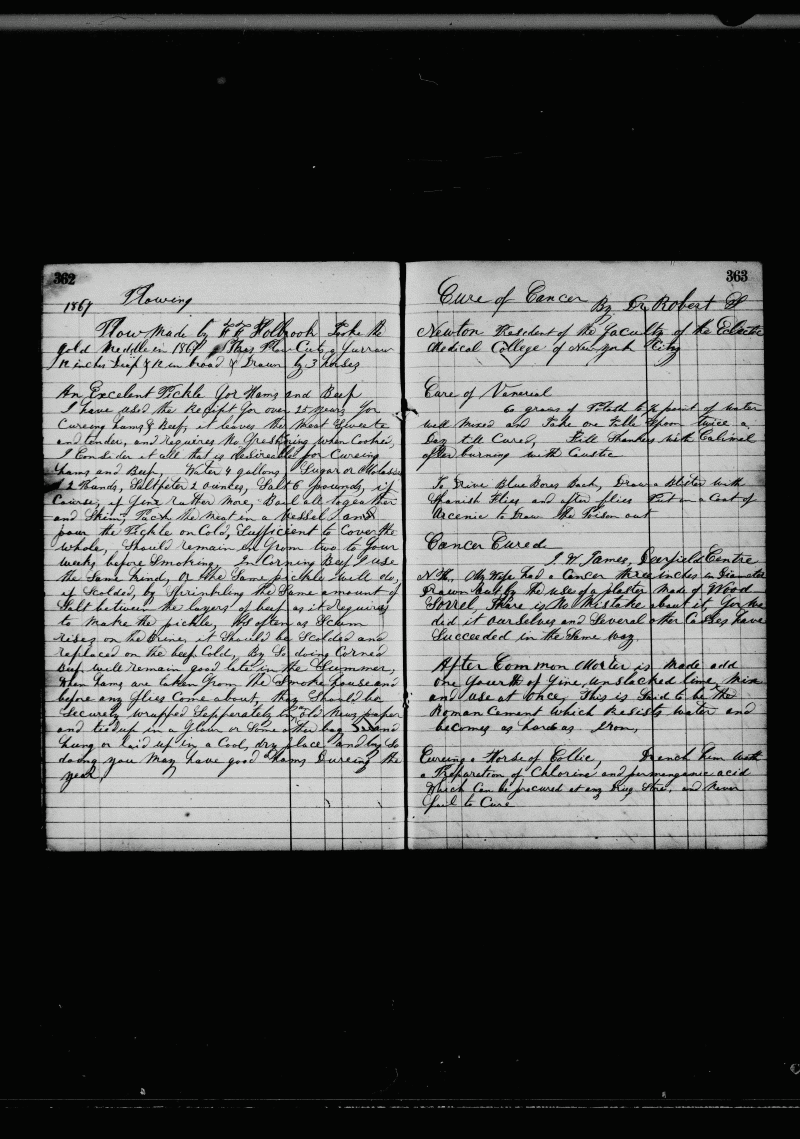 362
1869 Plowing
Plow Made by F F Holbrook Tooke the
gold Meddle in 1869 This Plow Cuts a Furrow
12 inches Deep & 12 in broad & Drawn by 3 horses
An Excelent Pickle For Hams and Beef
I have used the Receipt For over 25 years For
Cureing hams & Beef, it leaves the Meat Sweete
and tender, and requires No Freshning when Cooked,
I Consider it all that is desireable for Cureing
hams and Beef, Water 4 gallons Sugar or Molasses
2 Pounds, Saltpeter 2 ounces, Salt 6 pounds, if
Course, if Fine rather More, Boil all together
and Skim, Pack the Meat in a Vessel and
pour the Pickle on Cold, Sufficient to Cover the
whole, Should remain in From two to Four
weeks before Smoking, In Corning Beef I use
the Same kind, Or the Same pickle will do,
if Scolded, by Sprinkling the Same amount of
Salt between the layers of beef as it requires
to Make the pickle, As often as Scum
rises on the brine, it Should be Scolded and
replaced on the beef Cold, By So doing Corned
Beef will remain good late in the Summer,
When hams are taken From the Smoke house and
before any flies Come about, thay Should be
Securely wrapped Sepperately in an old News paper
and tied up in a Flour or Some other bag and
hung or laid up in a Cool, dry place and by So
doing you May have good Hams Dureing the
year,
363
Cure of Cancer By Dr Robert S
Newton President of the Faculty of the Eclectic
Medical College of New York City
Cure of Venereal
60 grains of Potash to ½ point of water
well Mixed and Take one table Spoon twice a
Day till Cured, Kill Shankers with Calimel
after burning with Caustic
To Drive Blue Bores Back, Draw a Blister with
Spanish Flies and after flies Put on a Coat of
Arcenic to Draw the Poison out
Cancer Cured
I W James, Deerfield Centre
N H., My Wife had a Cancer three inches in Diameter
Drawn out by the use of a plaster Made of Wood
Sorrel, There is No Mistake about it, For We
did it ourselves and Several other Casses have
Succeeded in the Same way.
After Common Morter is Made add
one Fourth of Fine, unslacked lime, Mix
and use at Once, This is Said to be the
Roman Cement which Resists water and
becomes as hard as Iron,
Cureing a Horse of Collic, Drench him with
a Preparation of Chlorine and permanganic acid
Which Can be procured at any Drug Store, and Never
Fail to Cure